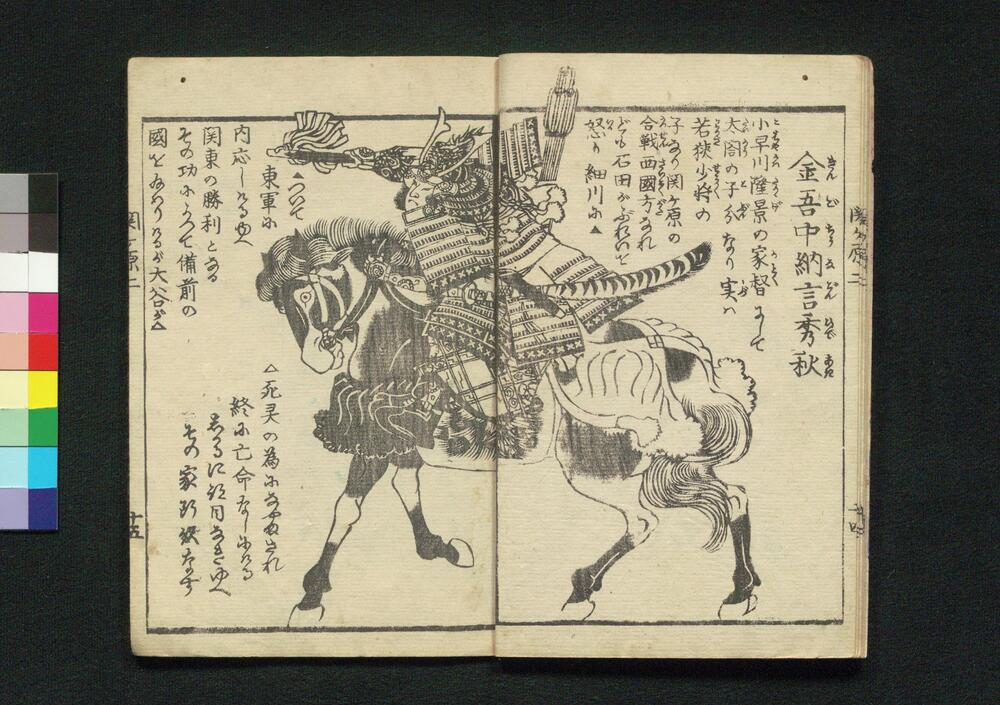 金吾中納言秀秋
小早川隆景の家督にして
太閤の子分なり実は
若狭少将の
子なり関ヶ原の
合戦西國方なれ
ども石田がぶれいを
怒り細川に▲
▲ついて
東軍に
内応しけるゆへ
関東の勝利となる
その功によつて備前の
國をたまわりけるが大谷が△
△死灵の為になやまされ
終に亡命なしにける
その家断絶なす
関ヶ原二
関ヶ原二
十五